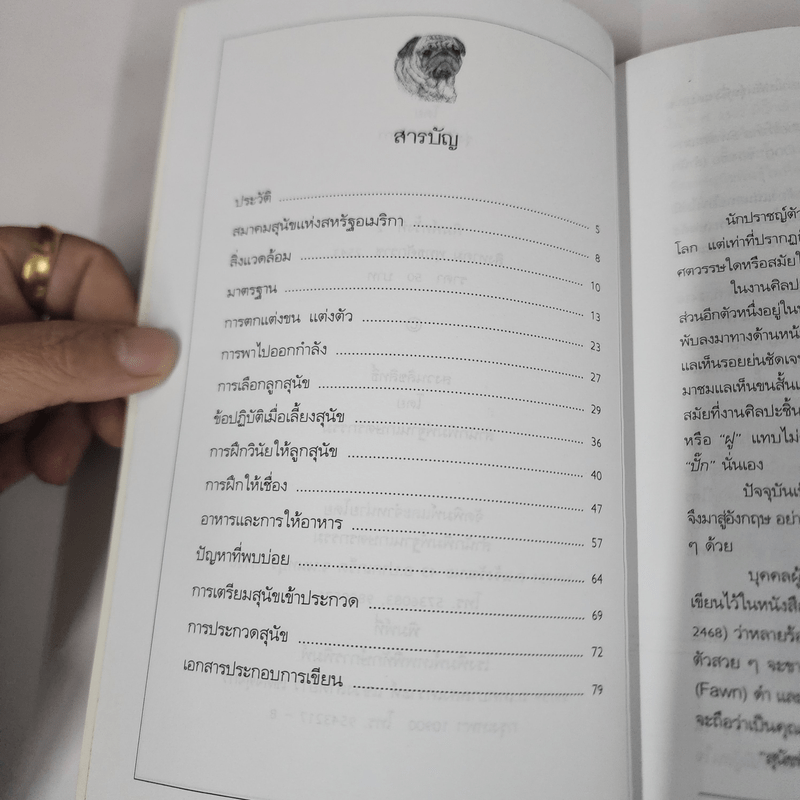 สารบัญ
ประวัติ 5
สมาคมสุนัขแห่งสหรัฐอเมริกา 8
สิ่งแวดล้อม 10
มาตรฐาน 13
การตกแต่งขน แต่งตัว 23
การพาไปออกกำลัง 27
การเลือกลูกสุนัข 29
ข้อปฏิบัติเมื่อเลี้ยงสุนัข 36
การฝึกวินัยให้ลูกสุนัข 40
การฝึกให้เชื่อง 47
อาหารและการให้อาหาร 57
ปัญหาที่พบบ่อย 64
การเตรียมสุนัขเข้าประกวด 69
การประกวดสุนัข 72
เอกสารประกอบการเขียน 79
นักปราชญ์ตัว
โลก แต่เท่าที่ปรากฏ
ศตวรรษใดหรือสมัยใ
ในงานศิลป
ส่วนอีกตัวหนึ่งอยู่ใน
พับลงมาทางด้านหน้
แลเห็นรอยย่นชัดเจ
มาชมแลเห็นขนสั้นเ
สมัยที่งานศิลปะชิ้น
หรือ "ฝู" แทบไม่
"ปั๊ก" นั่นเอง
ปัจจุบันเ
จึงมาสู่อังกฤษ อย่า
ๆ ด้วย
บุคคลผู้
เขียนไว้ในหนังสือ
2468) ว่าหลายร้อ
ตัวสวย ๆ จะขา
(Fawn) ดำ และ
จะถือว่าเป็นคุณ
"สุนัข